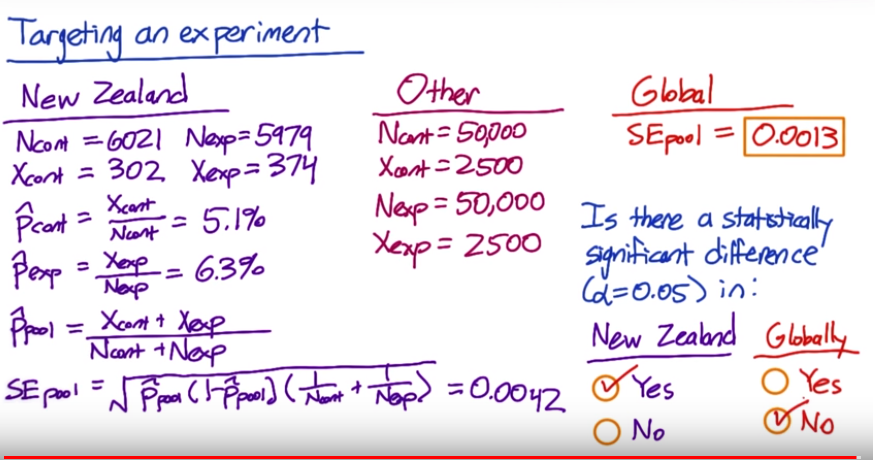 Targeting an experiment
New Zealand
Ncont = 6021 Nexp = 5979
Xcont = 302 Xexp = 374
p̂cont = Xcont / Ncont = 5.1%
p̂exp = Xexp / Nexp = 6.3%
p̂pool = Xcont + Xexp / Ncont + Nexp
SEpool = √p̂pool(1-p̂pool)(1/Ncont + 1/Nexp) = 0.0042
Other
Ncont = 50,000
Xcont = 2500
Nexp = 50,000
Xexp = 2500
Global
SEpool = 0.0013
Is there a statistically
significant difference
(α=0.05) in:
New Zealand Globally
Yes Yes
No No